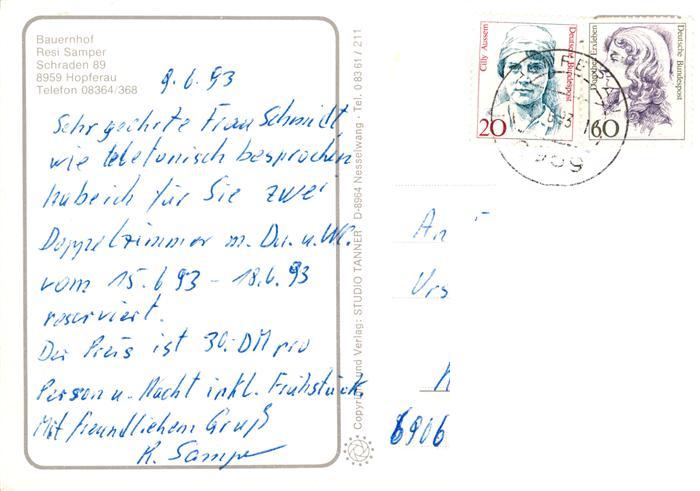 Bauernhof
Resi Samper
Schraden 89
8959 Hopferau
Telefon 08364/368
9.6.93
Sehr geehrte Frau Schmidt,
wie telefonisch besprochen
habe ich für Sie zwei
Doppelzimmer m. Du. u. WC.
vom 15.6 93 - 18.6.93
reserviert.
Der Preis ist 30.- DM pro
Person u. Nacht inkl. Frühstück.
Mit freundlichem Gruß
R. Samper
Copyright und Verlag: STUDIO TANNER · D-8964 Nesselwang · Tel. 0 83 61 / 211
Cilly Aussem
Deutsche Bundespost
20
Deutsche Bundespost
60
An
Urs
K
6906